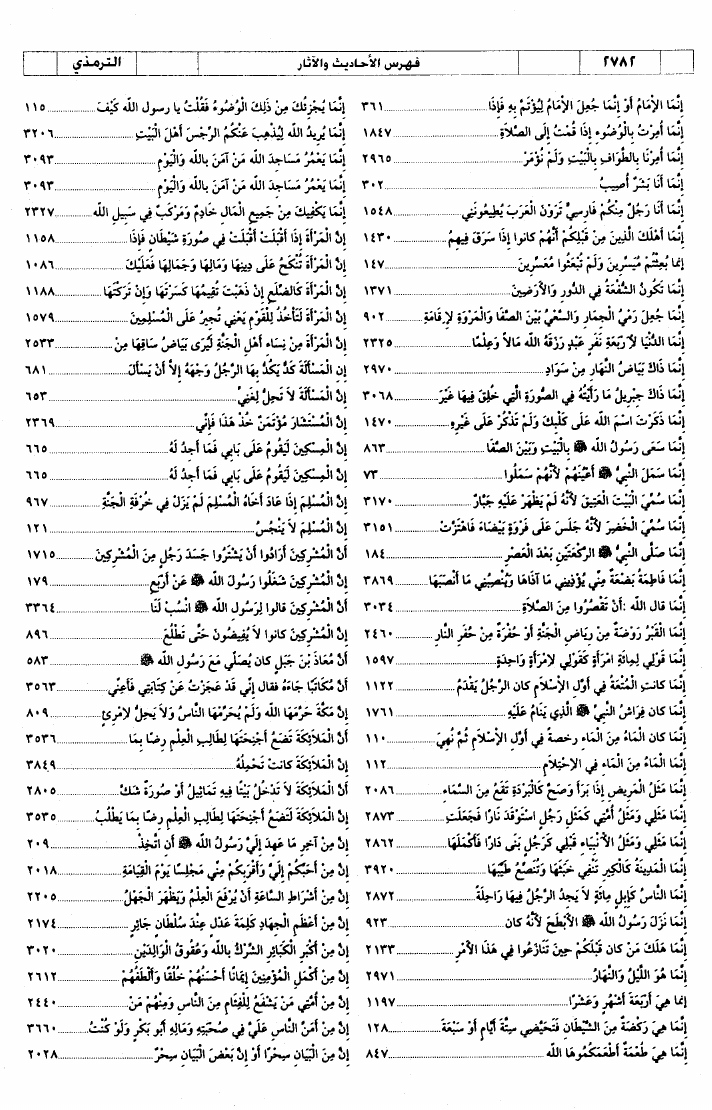 ٢٧٨٢
فهرس الأحاديث والآثار
الترمذي
إِنَّمَا الإِمَامُ أَوْ إِنَّمَا جُعِلَ الإِمَامُ لِيُؤْتَمَّ بِهِ فَإِذَا ٣٦١
إِنَّمَا أُمِرْتُ بِالْوُضُوءِ إِذَا قُمْتُ إِلَى الصَّلاَةِ ١٨٤٧
إِنَّمَا أُمِرْنَا بِالطَّوَافِ بِالْبَيْتِ وَلَمْ نُؤْمَرْ ٢٩٦٥
إِنَّمَا أَنَا بَشَرٌ أُصِيبُ ٣٠٢
إِنَّمَا أَنَا رَجُلٌ مِنْكُمْ فَارِسِيٌّ تَرَوْنَ الْعَرَبَ يُطِيعُونَنِي ١٥٤٨
إِنَّمَا أَهْلَكَ الَّذِينَ مِنْ قَبْلِكُمْ أَنَّهُمْ كانوا إِذَا سَرَقَ فِيهِمُ ١٤٣٠
إِنما بُعِثْتُمْ مُيَسِّرِينَ وَلَمْ تُبْعَثُوا مُعَسِّرِينَ ١٤٧
إِنَّمَا تَكُونُ الشُّفْعَةُ فِي الدُّورِ وَالأَرَضِينَ ١٣٧١
إِنَّمَا جُعِلَ رَمْيُ الْجِمَارِ وَالسَّعْيُ بَيْنَ الصَّفَا وَالْمَرْوَةِ لإِقَامَةِ ٩٠٢
إِنَّمَا الدُّنْيَا لأَرْبَعَةِ نَفَرٍ عَبْدٍ رَزَقَهُ الله مَالاً وَعِلْمًا ٢٣٢٥
إِنَّمَا ذَاكَ بَيَاضُ النَّهَارِ مِنْ سَوَادِ ٢٩٧٠
إِنَّمَا ذَاكَ جِبْرِيلُ مَا رَأَيْتُهُ فِي الصُّورَةِ الَّتِي خُلِقَ فِيهَا غَيْرَ ٣٠٦٨
إِنَّمَا ذَكَرْتَ اسْمَ الله عَلَى كَلْبِكَ وَلَمْ تَذْكُرْ عَلَى غَيْرِهِ ١٤٧٠
إِنَّمَا سَعَى رَسُولُ الله ﷺ بِالْبَيْتِ وَبَيْنَ الصَّفَا ٨٦٣
إِنَّمَا سَمَلَ النَّبِيُّ ﷺ أَعْيُنَهُمْ لأَنَّهُمْ سَمَلُوا ٧٣
إِنَّمَا سُمِّيَ الْبَيْتَ الْعَتِيقَ لأَنَّهُ لَمْ يَظْهَرْ عَلَيْهِ جَبَّارٌ ٣١٧٠
إِنَّمَا سُمِّيَ الْخَضِرَ لأَنَّهُ جَلَسَ عَلَى فَرْوَةٍ بَيْضَاءَ فَاهْتَزَّتْ ٣١٥١
إِنَّمَا صَلَّى النَّبِيُّ ﷺ الرَّكْعَتَيْنِ بَعْدَ الْعَصْرِ ١٨٤
إِنَّمَا فَاطِمَةُ بَضْعَةٌ مِنِّي يُؤْذِينِي مَا آذَاهَا وَيُنْصِبُنِي مَا أَنْصَبَهَا ٣٨٦٩
إِنَّمَا قال الله :أَنْ تَقْصُرُوا مِنَ الصَّلاَةِ ٣٠٣٤
إِنَّمَا الْقَبْرُ رَوْضَةٌ مِنْ رِيَاضِ الْجَنَّةِ أَوْ حُفْرَةٌ مِنْ حُفَرِ النَّارِ ٢٤٦٠
إِنَّمَا قَوْلِي لِمِائَةِ امْرَأَةٍ كَقَوْلِي لامْرَأَةٍ وَاحِدَةٍ ١٥٩٧
إِنَّمَا كانتِ الْمُتْعَةُ فِي أَوَّلِ الإِسْلاَمِ كان الرَّجُلُ يَقْدَمُ ١١٢٢
إِنَّمَا كان فِرَاشُ النَّبِيِّ ﷺ الَّذِي يَنَامُ عَلَيْهِ ١٧٦١
إِنَّمَا كان الْمَاءُ مِنَ الْمَاءِ رخصةً فِي أَوَّلِ الإِسْلاَمِ ثُمَّ نُهِيَ ١١٠
إِنَّمَا الْمَاءُ مِنَ الْمَاءِ فِي الاِحْتِلاَمِ ١١٢
إِنَّمَا مَثَلُ الْمَرِيضِ إِذَا بَرَأَ وَصَحَّ كَالْبَرْدَةِ تَقَعُ مِنَ السَّمَاءِ ٢٠٨٦
إِنَّمَا مَثَلِي وَمَثَلُ أُمَّتِي كَمَثَلِ رَجُلٍ اسْتَوْقَدَ نَارًا فَجَعَلَتِ ٢٨٧٣
إِنَّمَا مَثَلِي وَمَثَلُ الأَنْبِيَاءِ قَبْلِي كَرَجُلٍ بَنَى دَارًا فَأَكْمَلَهَا ٢٨٦٢
إِنَّمَا الْمَدِينَةُ كَالْكِيرِ تَنْفِي خَبَثَهَا وَتُنَصِّعُ طَيِّبَهَا ٣٩٢٠
إِنَّمَا النَّاسُ كَإِبِلٍ مِائَةٍ لاَ يَجِدُ الرَّجُلُ فِيهَا رَاحِلَةً ٢٨٧٢
إِنَّمَا نَزَلَ رَسُولُ الله ﷺ الأَبْطَحَ لأَنَّهُ كان ٩٢٣
إِنَّمَا هَلَكَ مَنْ كان قَبْلَكُمْ حِينَ تَنَازَعُوا فِي هَذَا الأَمْرِ ٢١٣٣
إِنَّمَا هُوَ اللَّيْلُ وَالنَّهَارُ ٢٩٧١
إنما هِيَ أَرْبَعَةَ أَشْهُرٍ وَعَشْرًا ١١٩٧
إِنَّمَا هِيَ رَكْضَةٌ مِنَ الشَّيْطَانِ فَتَحَيَّضِي سِتَّةَ أَيَّامٍ أَوْ سَبْعَةَ ١٢٨
إِنَّمَا هِيَ طُعْمَةٌ أَطْعَمَكُمُوهَا الله ٨٤٧
إِنَّمَا يُجْزِئُكَ مِنْ ذَلِكَ الْوُضُوءُ فَقُلْتُ يا رسول الله كَيْفَ ١١٥
إِنَّمَا يُرِيدُ الله لِيُذْهِبَ عَنْكُمُ الرِّجْسَ أَهْلَ الْبَيْتِ ٣٢٠٦
إِنَّمَا يَعْمُرُ مَسَاجِدَ الله مَنْ آمَنَ بالله وَالْيَوْمِ ٣٠٩٣
إِنَّمَا يَعْمُرُ مَسَاجِدَ الله مَنْ آمَنَ بالله وَالْيَوْمِ ٣٠٩٣
إِنَّمَا يَكْفِيكَ مِنْ جَمِيعِ الْمَالِ خَادِمٌ وَمَرْكَبٌ فِي سَبِيلِ الله ٢٣٢٧
إِنَّ الْمَرْأَةَ إِذَا أَقْبَلَتْ أَقْبَلَتْ فِي صُورَةِ شَيْطَانٍ فَإِذَا ١١٥٨
إِنَّ الْمَرْأَةَ تُنْكَحُ عَلَى دِينِهَا وَمَالِهَا وَجَمَالِهَا فَعَلَيْكَ ١٠٨٦
إِنَّ الْمَرْأَةَ كَالضِّلَعِ إِنْ ذَهَبْتَ تُقِيمُهَا كَسَرْتَهَا وَإِنْ تَرَكْتَهَا ١١٨٨
إِنَّ الْمَرْأَةَ لَتَأْخُذُ لِلْقَوْمِ يَعْنِي تُجِيرُ عَلَى الْمُسْلِمِينَ ١٥٧٩
إِنَّ الْمَرْأَةَ مِنْ نِسَاءِ أَهْلِ الْجَنَّةِ لَيُرَى بَيَاضُ سَاقِهَا مِنْ ٢٥٣٣
إِن الْمَسْأَلَةَ كَدٌّ يَكُدُّ بِهَا الرَّجُلُ وَجْهَهُ إِلاَّ أَنْ يَسْأَلَ ٦٨١
إِنَّ الْمَسْأَلَةَ لاَ تَحِلُّ لِغَنِيٍّ ٦٥٣
إِنَّ الْمُسْتَشَارَ مُؤْتَمَنٌ خُذْ هَذَا فَإِنِّي ٢٣٦٩
إِنَّ الْمِسْكِينَ لَيَقُومُ عَلَى بَابِي فَمَا أَجِدُ لَهُ ٦٦٥
إِنَّ الْمِسْكِينَ لَيَقُومُ عَلَى بَابِي فَمَا أَجِدُ لَهُ ٦٦٥
إِنَّ الْمُسْلِمَ إِذَا عَادَ أَخَاهُ الْمُسْلِمَ لَمْ يَزَلْ فِي خُرْفَةِ الْجَنَّةِ ٩٦٧
إِنَّ الْمُسْلِمَ لاَ يَنْجُسُ ١٢١
أَنَّ الْمُشْرِكِينَ أَرَادُوا أَنْ يَشْتَرُوا جَسَدَ رَجُلٍ مِنَ الْمُشْرِكِينَ ١٧١٥
إِنَّ الْمُشْرِكِينَ شَغَلُوا رَسُولَ الله ﷺ عَنْ أَرْبَعِ ١٧٩
أَنَّ الْمُشْرِكِينَ قالوا لِرَسُولِ الله ﷺ انْسُبْ لَنَا ٣٣٦٤
إِنَّ الْمُشْرِكِينَ كانوا لاَ يُفِيضُونَ حَتَّى تَطْلُعَ ٨٩٦
أَنَّ مُعَاذَ بْنَ جَبَلٍ كان يُصَلِّي مَعَ رَسُولِ الله ﷺ ٥٨٣
أَنَّ مُكَاتَبًا جَاءَهُ فقال إِنِّي قَدْ عَجَزْتُ عَنْ كِتَابَتِي فَأَعِنِّي ٣٥٦٣
إِنَّ مَكَّةَ حَرَّمَهَا الله وَلَمْ يُحَرِّمْهَا النَّاسُ وَلاَ يَحِلُّ لامْرِئٍ ٨٠٩
أَنَّ الْمَلاَئِكَةَ تَضَعُ أَجْنِحَتَهَا لِطَالِبِ الْعِلْمِ رِضًا بِمَا ٣٥٣٦
إِنَّ الْمَلاَئِكَةَ كانت تَحْمِلُهُ ٣٨٤٩
أَنَّ الْمَلاَئِكَةَ لاَ تَدْخُلُ بَيْتًا فِيهِ تَمَاثِيلُ أَوْ صُورَةٌ شَكَّ ٢٨٠٥
إِنَّ الْمَلاَئِكَةَ لَتَضَعُ أَجْنِحَتَهَا لِطَالِبِ الْعِلْمِ رِضًا بِمَا يَطْلُبُ ٣٥٣٥
إِنَّ مِنْ آخِرِ مَا عَهِدَ إِلَيَّ رَسُولُ الله ﷺ أَنِ اتَّخِذْ ٢٠٩
إِنَّ مِنْ أَحَبِّكُمْ إِلَيَّ وَأَقْرَبِكُمْ مِنِّي مَجْلِسًا يَوْمَ الْقِيَامَةِ ٢٠١٨
إِنَّ مِنْ أَشْرَاطِ السَّاعَةِ أَنْ يُرْفَعَ الْعِلْمُ وَيَظْهَرَ الْجَهْلُ ٢٢٠٥
إِنَّ مِنْ أَعْظَمِ الْجِهَادِ كَلِمَةَ عَدْلٍ عِنْدَ سُلْطَانٍ جَائِرٍ ٢١٧٤
إِنَّ مِنْ أَكْبَرِ الْكَبَائِرِ الشِّرْكُ بالله وَعُقُوقُ الْوَالِدَيْنِ ٣٠٢٠
إِنَّ مِنْ أَكْمَلِ الْمُؤْمِنِينَ إِيمَانًا أَحْسَنُهُمْ خُلُقًا وَأَلْطَفُهُمْ ٢٦١٢
إِنَّ مِنْ أُمَّتِي مَنْ يَشْفَعُ لِلْفِئَامِ مِنَ النَّاسِ وَمِنْهُمْ مَنْ ٢٤٤٠
إِنَّ مِنْ أَمَنِّ النَّاسِ عَلَيَّ فِي صُحْبَتِهِ وَمَالِهِ أَبُو بَكْرٍ وَلَوْ كُنْتُ ٣٦٦٠
إِنَّ مِنَ الْبَيَانِ سِحْرًا أَوْ إِنَّ بَعْضَ الْبَيَانِ سِحْرٌ ٢٠٢٨